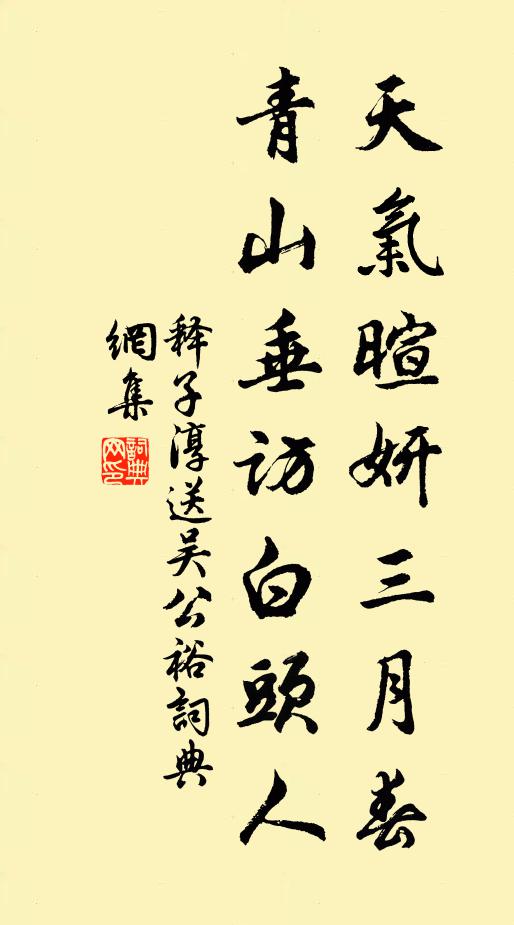 天氣暄妍三月春
青山垂訪白頭人
释子淳送吴公裕詞典
網集
詞典
网印